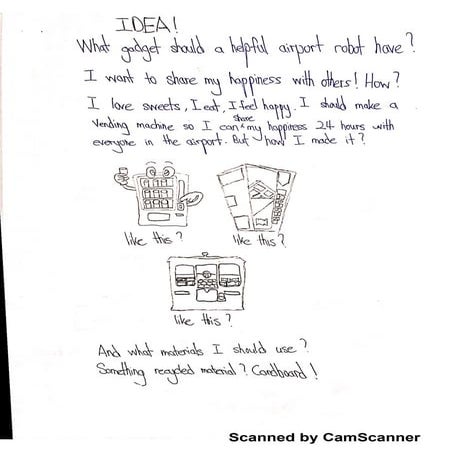 IDEA!
What gadget should a helpful airport robot have?
I want to share my happiness with others! How?
I love sweets, I eat, I feel happy. I should make a
vending machine so I can share my happiness 24 hours with
everyone in the airport. But how I made it?
like this?
like this?
like this?
And what materials I should use?
Something recycled material? Cardboard!
Scanned by CamScanner